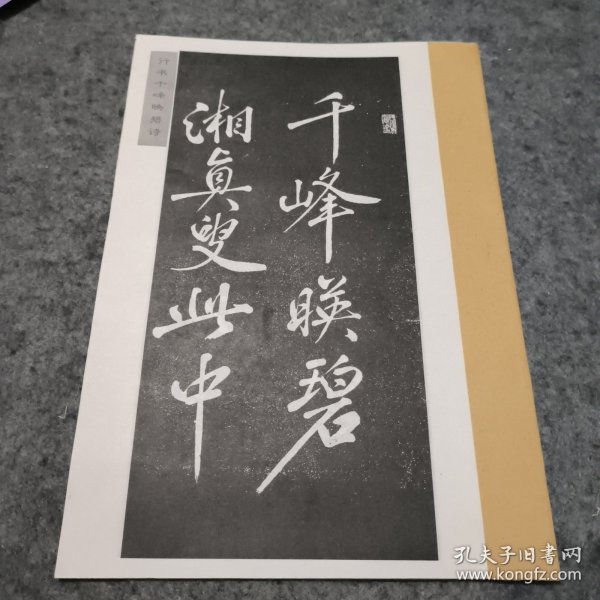 行书千峰映碧诗
千峰暎碧
湘真叟此中
孔夫子旧书网
www.kongfz.com